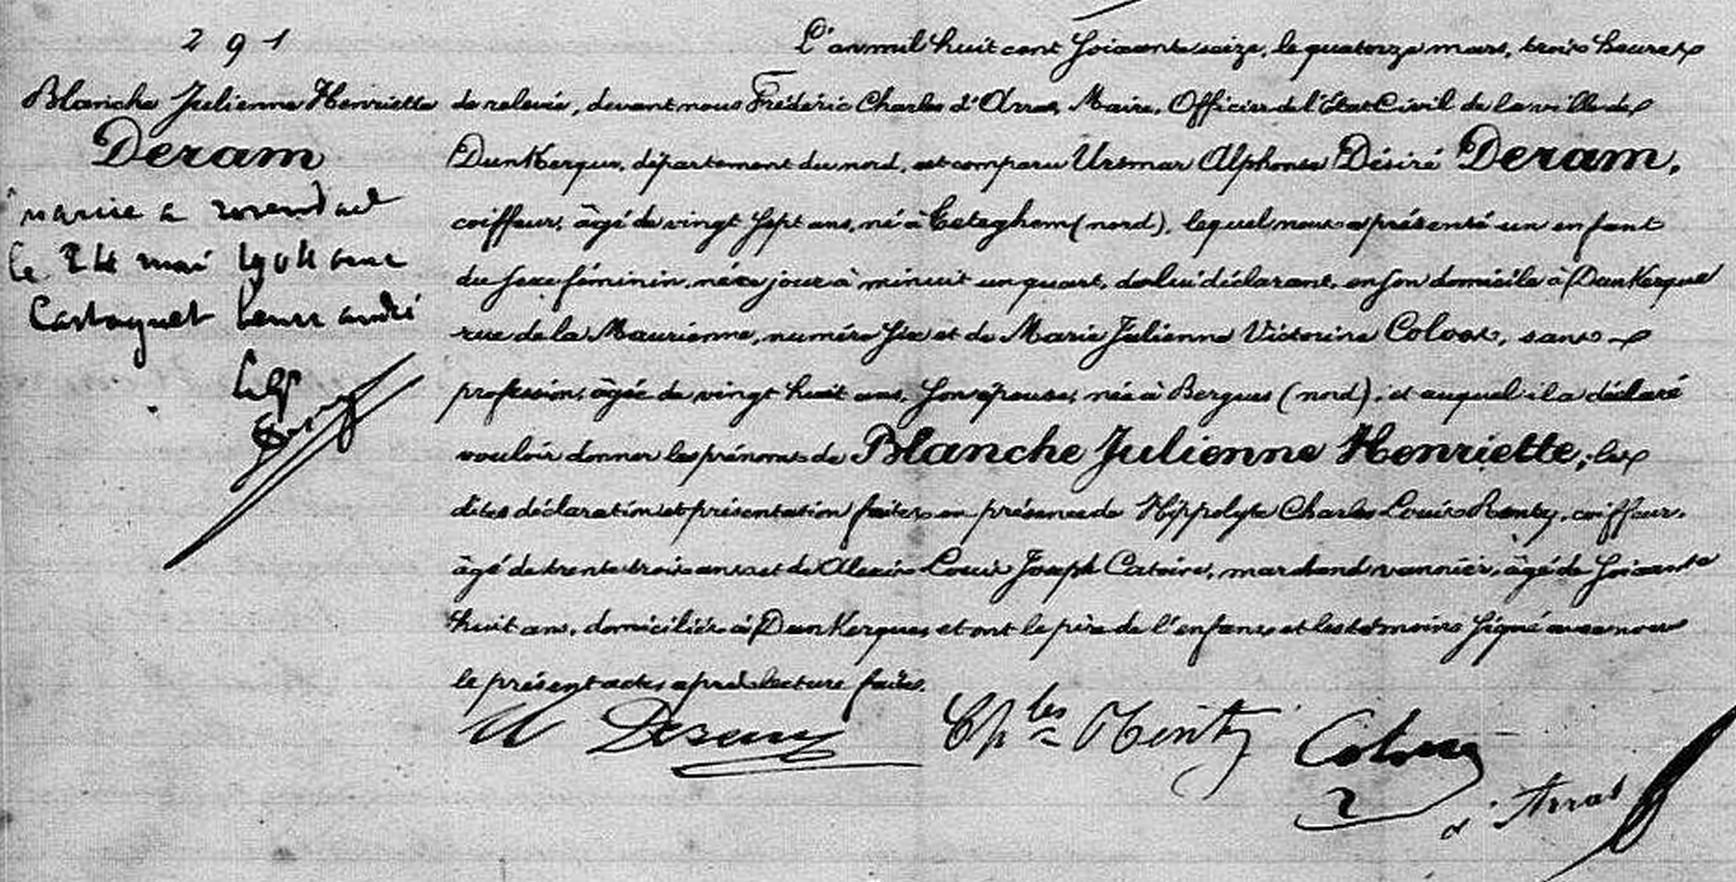 291
Blanche Julienne Henriette
Deram
mariée a rosendael
le 24 mai 1904 avec
Castaquet henri andré
L'an mil huit cent soixante seize, le quatorze mars, trois heures
de relevée, devant nous Frédéric Charles d'Arras, Maire, Officier de l'État Civil de la ville de
DunKerque, département du nord, est comparu Ursmar Alphonse Désiré Deram,
coiffeur, âgé de vingt sept ans, né à Ceteghem (nord), lequel nous a présenté un enfant
du sexe féminin, née ce jour à minuit un quart, de lui déclarant, en son domicile à DunKerque
rue de la Maurienne, numéro six et de Marie Julienne Victorine Coloos, sans
profession, âgée de vingt huit ans, son épouse, née à Bergues (nord), et auquel il a déclaré
vouloir donner les prénoms de Blanche Julienne Henriette; les
dites déclaration et présentation faites en présence de Hippolyte Charles Louis Renty, coiffeur,
âgé de trente trois ans et de Alexis Louis Joseph Catoire, marchand vannier, âgé de soixante
huit ans, domiciliés à DunKerque, et ont le père de l'enfant et les témoins signé avec nous
le présent acte, après lecture faite.
U Deram Ch les Renty
d'Arras